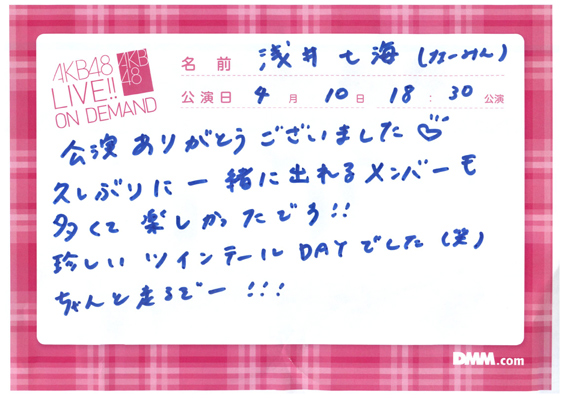 AKB48
LIVE!!
ON DEMAND
AKB
48
名前 浅井七海(なーみん)
公演日 4月10日 18:30公演
公演ありがとうございました♡
久しぶりに一緒に出れるメンバーも
多くて楽しかったでう!!
珍しいツインテールDAYでした(笑)
ちゃんと走るぞー!!!
DMM.com